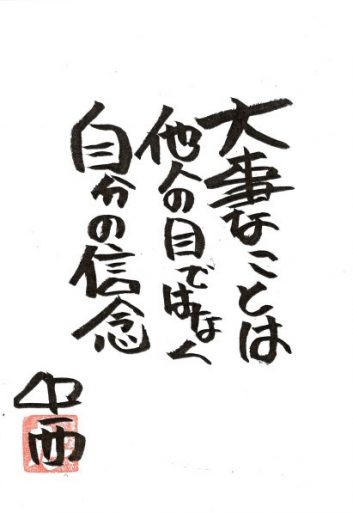 大事なことは
他人の目ではなく
自分の信念
中西